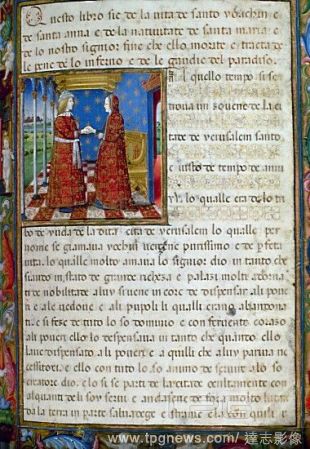 Questo libro sie de la vita de santo yoachin e
de santa anna e de la natiuitate de santa maria e
de lo nostro signior fine che ello morite e tracta de
le pene de lo inferno e de le gaudie del paradiso.
A quello tempo si se
troua un zouene de la ci
tate de yerusalem santo
e iusto de tempo de anni
lo quale era de lo tri
bo de yuda de la dita cita de yerusalem lo qualle per
nome se giamaua
purissimo e de perfeta
vita. lo qualle molto amaua lo signior dio in tanto che
siando in stato de grande richeza e palazi molte adorna
ti de nobilitate a luy si uene in core de dispensar ali poue
ri e ale uedoue e ali pupoli li qualli erano abandona
ti e si fese de tuto lo so domino e con feruente corazo
ali poueri ello lo despensaua in tanto che quanto ello
laue dispensato ali poueri e a quilli che aluy pariua ne
cessitoxi. e ello con tuto lo so animo de seruire alo so
creatore dio. elo si se parti de la citade ocultamente con
alquanti deli soy serui e andasene de fora molto lutano
da la terra in parte saluatege e stranie ela con quisti
www.tpgnews.com/ 達志影像